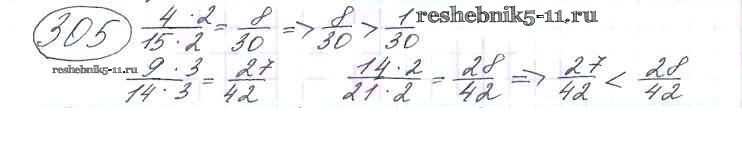 305 4·2/15·2 = 8/30 => 8/30 > 1/30 reshebnik5-11.ru
reshebnik5-11.ru 9·3/14·3 = 27/42 14·2/21·2 = 28/42 => 27/42 < 28/42